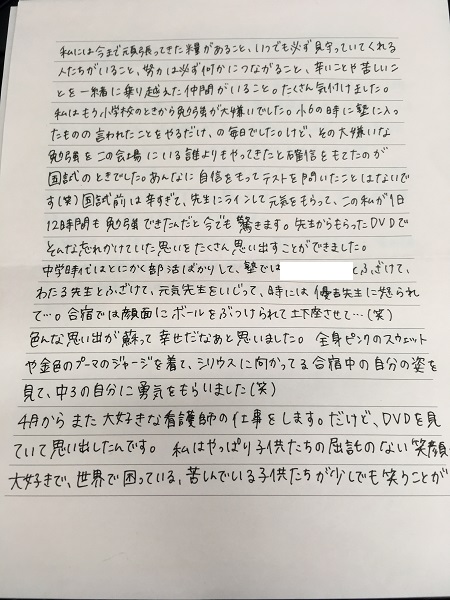 私には今まで頑張ってきた糧があること、いつでも必ず見守っていてくれる
人たちがいること、努力は必ず何かにつながること、辛いことや苦しいこ
とを一緒に乗り越えた仲間がいること。たくさん気付けました。
私はもう小学校のときから勉強が大嫌いでした。小6の時に塾に入っ
たものの言われたことをやるだけ、の毎日でしたけど、その大嫌いな
勉強をこの会場にいる誰よりもやってきたと確信をもてたのが
国試のときでした。あんなに自信をもってテストを開いたことはないで
す(笑)国試前は辛すぎて、先生にラインして元気をもらって、この私が1日
12時間も勉強できたんだと今でも驚きます。先生からもらったDVDで
そんな忘れかけていた思いをたくさん思い出すことができました。
中学時代はとにかく部活ばかりして、塾では とふざけて、
わたる先生とふざけて、元気先生をいじって、時には優吉先生に怒られ
て…。合宿では顔面にボールをぶつけられて土下座させて…(笑)
色んな思い出が蘇って幸せだなあと思いました。全身ピンクのスウェット
や金色のプーマのジャージを着て、シリウスに向かってる合宿中の自分の姿を
見て、中3の自分に勇気をもらいました(笑)
4月からまた大好きな看護師の仕事をします。だけど、DVDを見
ていて思い出したんです。私はやっぱり子供たちの屈託のない笑顔
大好きで、世界で困っている、苦しんでいる子供たちが少しでも笑うことが